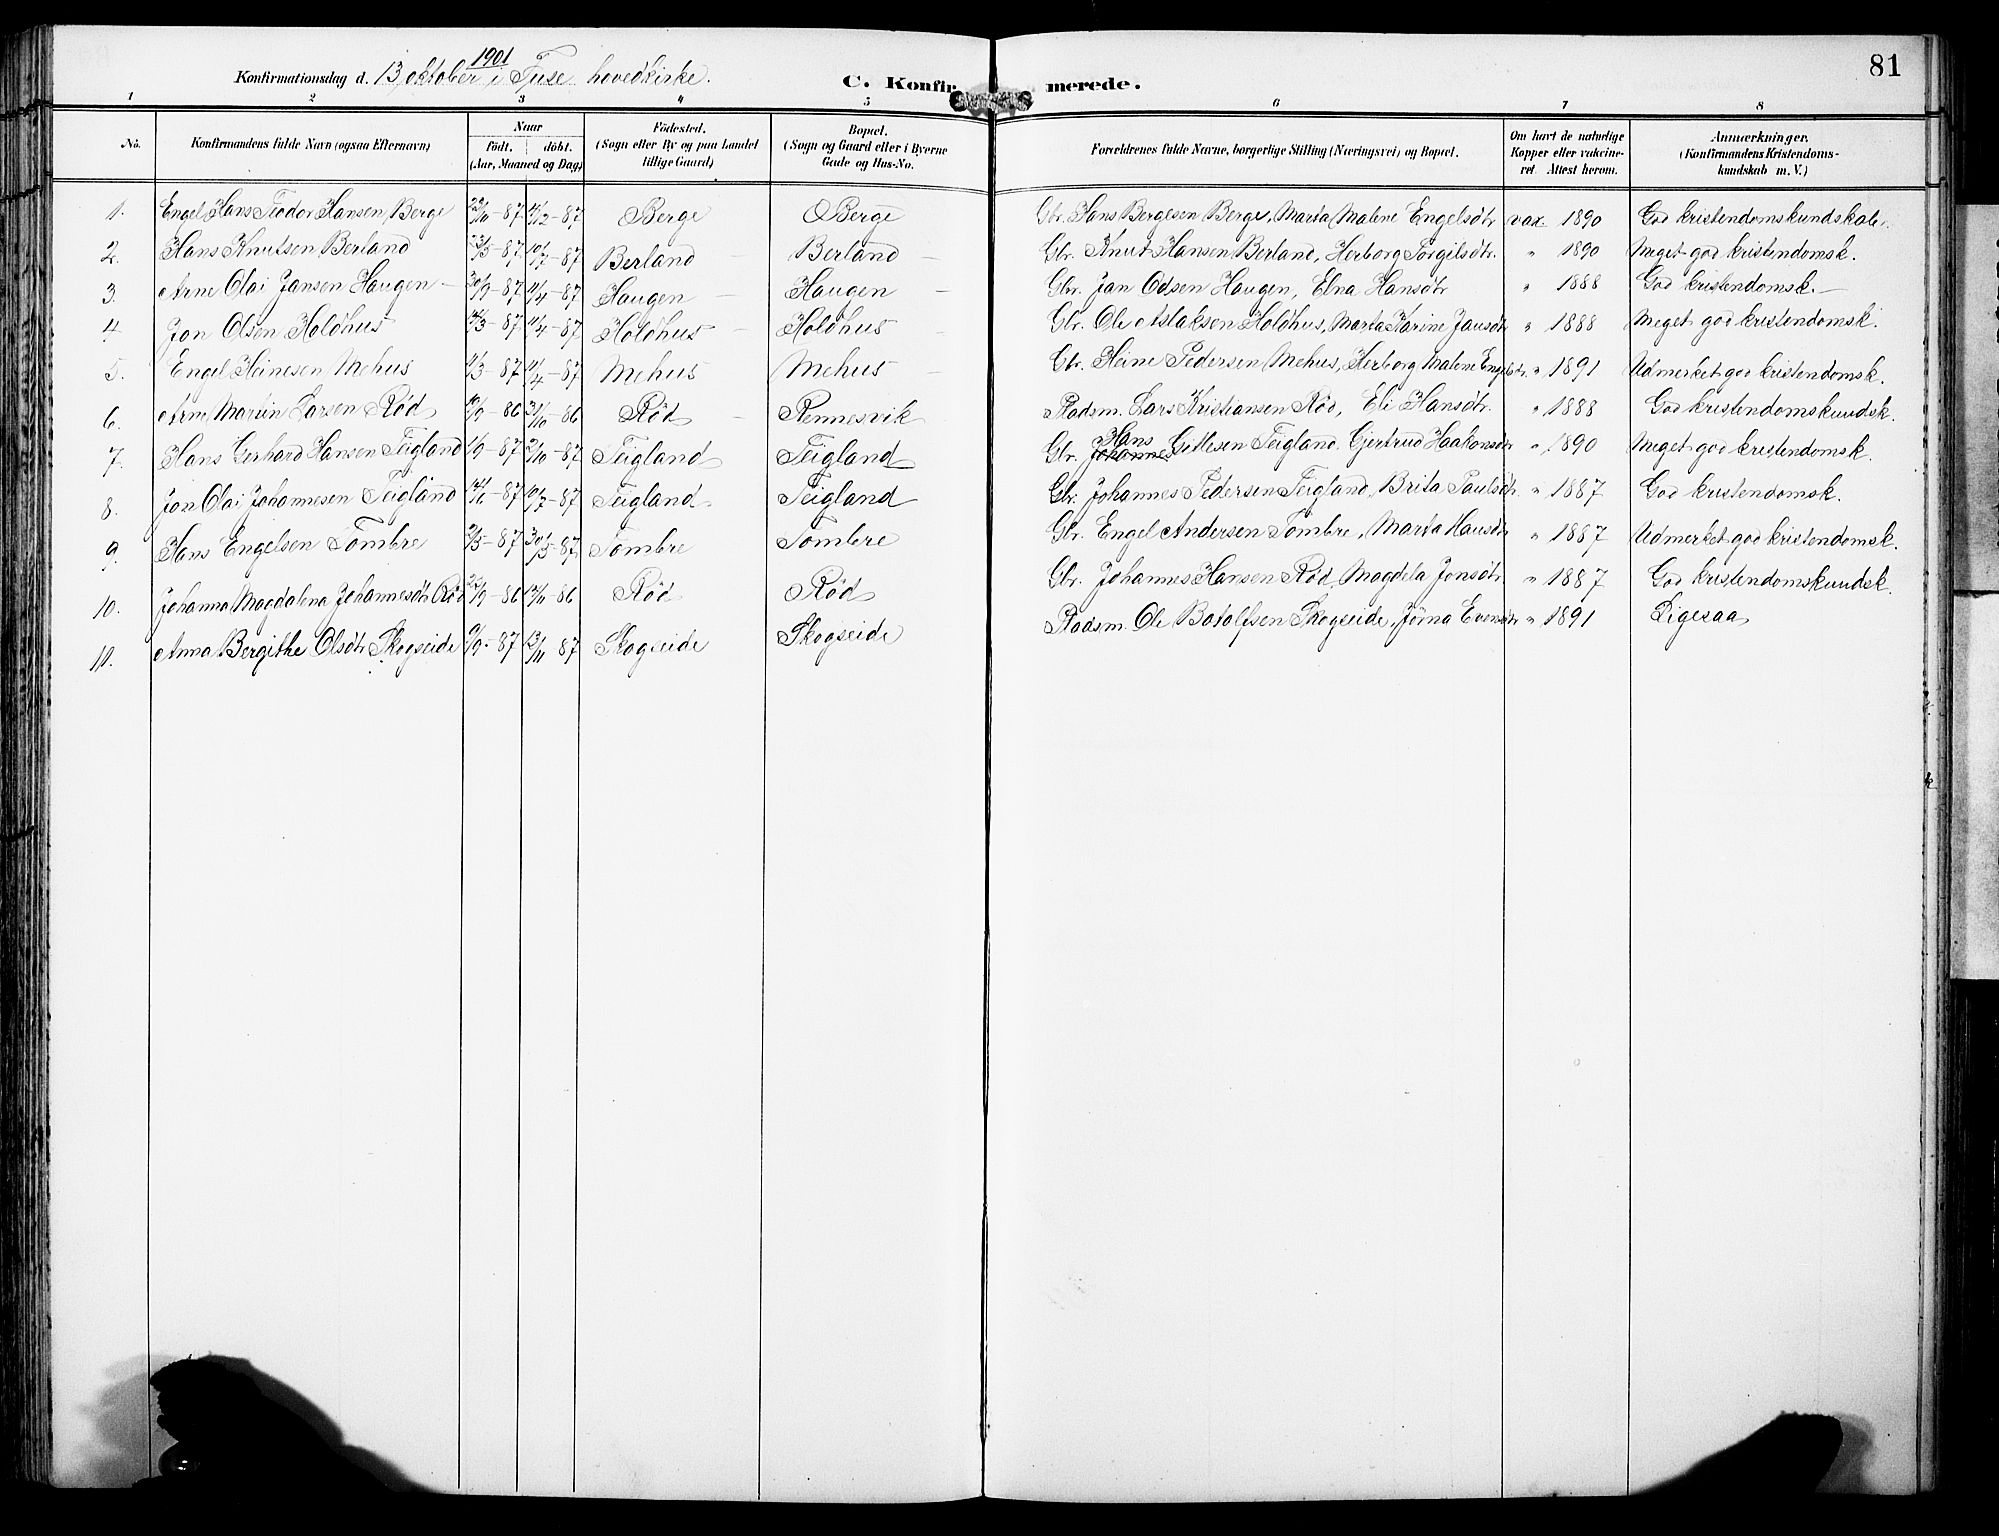 Konfirmationsdag d. 13 oktober 1901 i Fuse hovedkirke. C. Konfirmerede. 81
1 2 3 4 5 6 7 8
No. Konfirmandens fulde Navn (ogsaa Efternavn) Naar födt. döbt. (Aar, Maaned og Dag) Födested. (Sogn eller By og paa Landet tillige Gaard) Bopæl. (Sogn og Gaard eller i Byerne Gade og Hus-No. Forældrenes fulde Navne, borgerlige Stilling (Næringsvei) og Bopæl. Om havt de naturlige Kopper eller vakcineret. Attest herom. Anmærkninger. (Konfirmandens Kristendomskundskab m. V.)
1. Engel Hans Teodor Hansen Berge 22/10-87 11/12-87 Berge Berge Gbr. Hans Bergesen Berge, Marta Malene Engelsdtr vax. 1890 God kristendomskundskab.
2. Hans Knutsen Berland 23/5-87 10/7-87 Berland Berland Gbr. Knut Hansen Berland, Herborg Torgilsdtr. " 1890 Meget god kristendomsk.
3. Arne Olai Jansen Haugen 87 11/4-87 Haugen Haugen Gbr. Jan Odsen Haugen, Elna Hansdtr " 1888 God kristendomsk.
4. Jon Olsen Holdhus /3-87 11/4-87 Holdhus Holdhus Gbr. Ole Aslaksen Holdhus, Marta Karine Jansdtr " 1888 Meget god kristendomsk.
5. Engel Heinesen Mehus /3-87 11/4-87 Mehus Mehus Gbr. Heine Pedersen Mehus, Herborg Malene Engelsdtr. " 1891 Udmerket god kristendomsk.
6. Arne Martin Larsen Röd 10/9-86 31/10-86 Röd Rennesvik Pladsm. Lars Kristiansen Röd, Eli Hansdtr. " 1888 God kristendomskundsk.
7. Hans Gerhard Hansen Teigland 1/9-87 2/10-87 Teigland Teigland Gbr. Johannes Hans Gitlesen Teigland, Gjertrud Haakonsdtr " 1890 Meget god kristendomsk.
8. Jon Olai Johannesen Teigland /6-87 10/7-87 Teigland Teigland Gbr. Johannes Pedersen Teigland, Brita Paulsdtr. " 1887 God kristendomsk.
9. Hans Engelsen Tombre 2/5-87 30/5-87 Tombre Tombre Gbr. Engel Andersen Tombre, Marta Hansdtr " 1887 Udmerket god kristendomsk.
10. Johanna Magdalena Johannesdtr Röd /9-86 14/11-86 Röd Röd Gbr. Johannes Hansen Röd, Magdela Jonsdtr " 1887 God kristendomskundsk.
11. Anna Bergithe Olsdtr Skogseide 9/9-87 13/11-87 Skogseide Skogseide Pladsm. Ole Botolfsen Skogseide, Jörna Evensdtr " 1891 Ligesaa